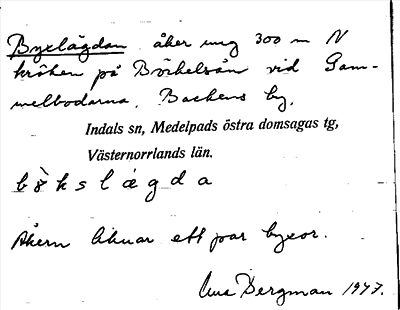 Byxlägdan åker ung 300 m N
kröken på Bökelsån vid Gam-
melbodarna. Backens by.
Indals sn, Medelpads östra domsagas tg,
Västernorrlands län.
b ò k s l ä g d a
Åkern liknar ett par byxor.
Bergman 1977.